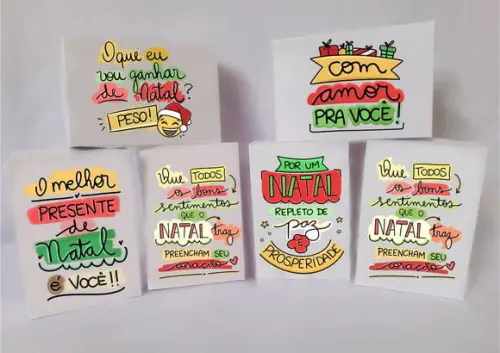 O que eu
vou ganhar
de Natal?
PESO!
COM
amor
PRA VOCÊ!
O melhor
PRESENTE
de
Natal
é VOCÊ!!
Que TODOS
os bons
sentimentos
QUE O
NATAL traz
PREENCHAM SEU
coração
POR UM
NATAL
REPLETO DE
paz
E
PROSPERIDADE
Que TODOS
os bons
sentimentos
QUE O
NATAL traz
PREENCHAM SEU
coração